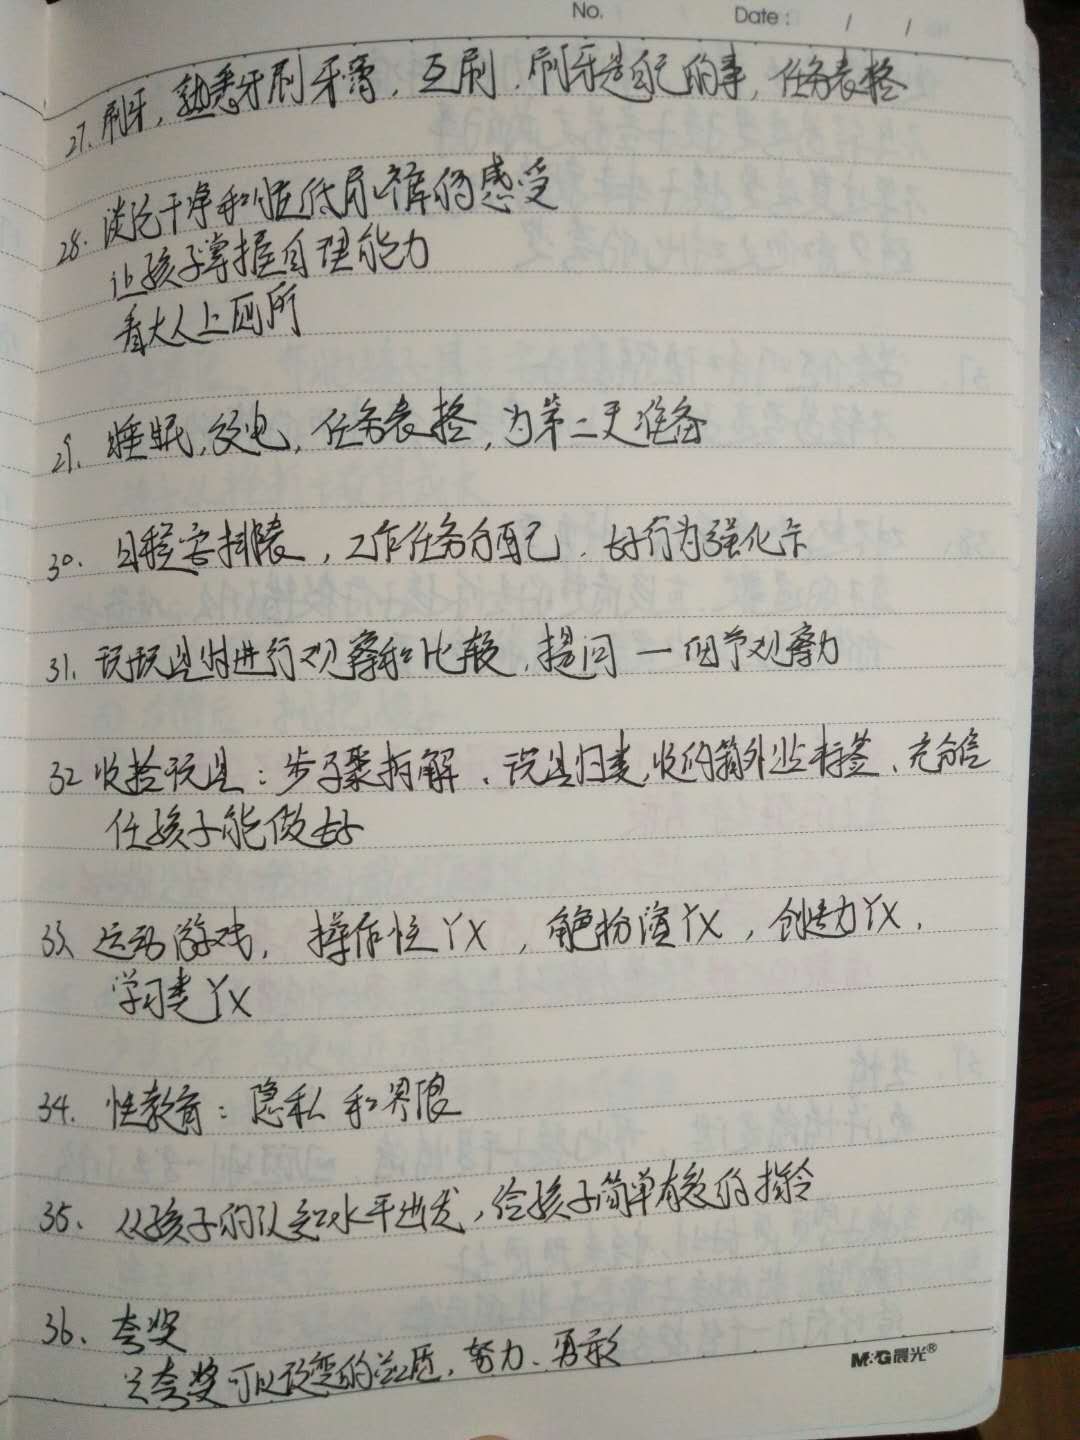 No.
Date: / /
27. 刷牙，熟悉牙刷牙膏，互刷．刷牙是自己的事，任务表格
28. 谈论干净和尿裤的感受
让孩子掌握自理能力
看大人上厕所
29. 睡眠，放电，任务表格，为第二天准备
30. 日程安排表，工作任务分配，好行为强化卡
31. 玩玩具时进行观察和比较，提问一细节观察力
32 收拾玩具：步子骤拆解、玩具归类，收纳箱外贴标签、充分信
任孩子能做好
33、运动游戏，操作性YX，角色扮演YX，创造力YX，
学习类YX
34. 性教育：隐私和界限
35、从孩子的认知水平出发，给孩子简单有效的指令
36、夸奖
只夸奖可以改变的品质，努力、勇敢
M&G晨光®